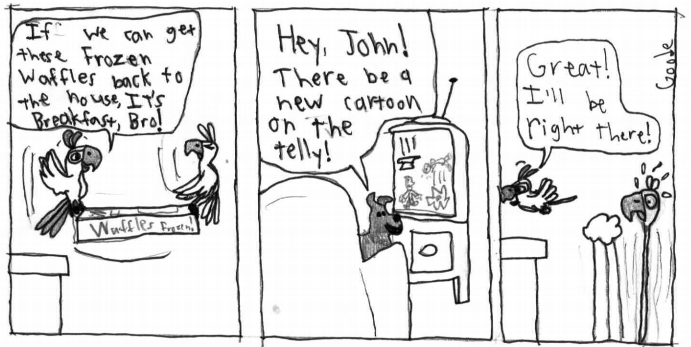 If we can get
these Frozen
Waffles back to
the house, It's
Breakfast, Bro!
Waffles Frozen
Hey, John!
There be a
new cartoon
on the
telly!
Great!
I'll be
right there!
Goode